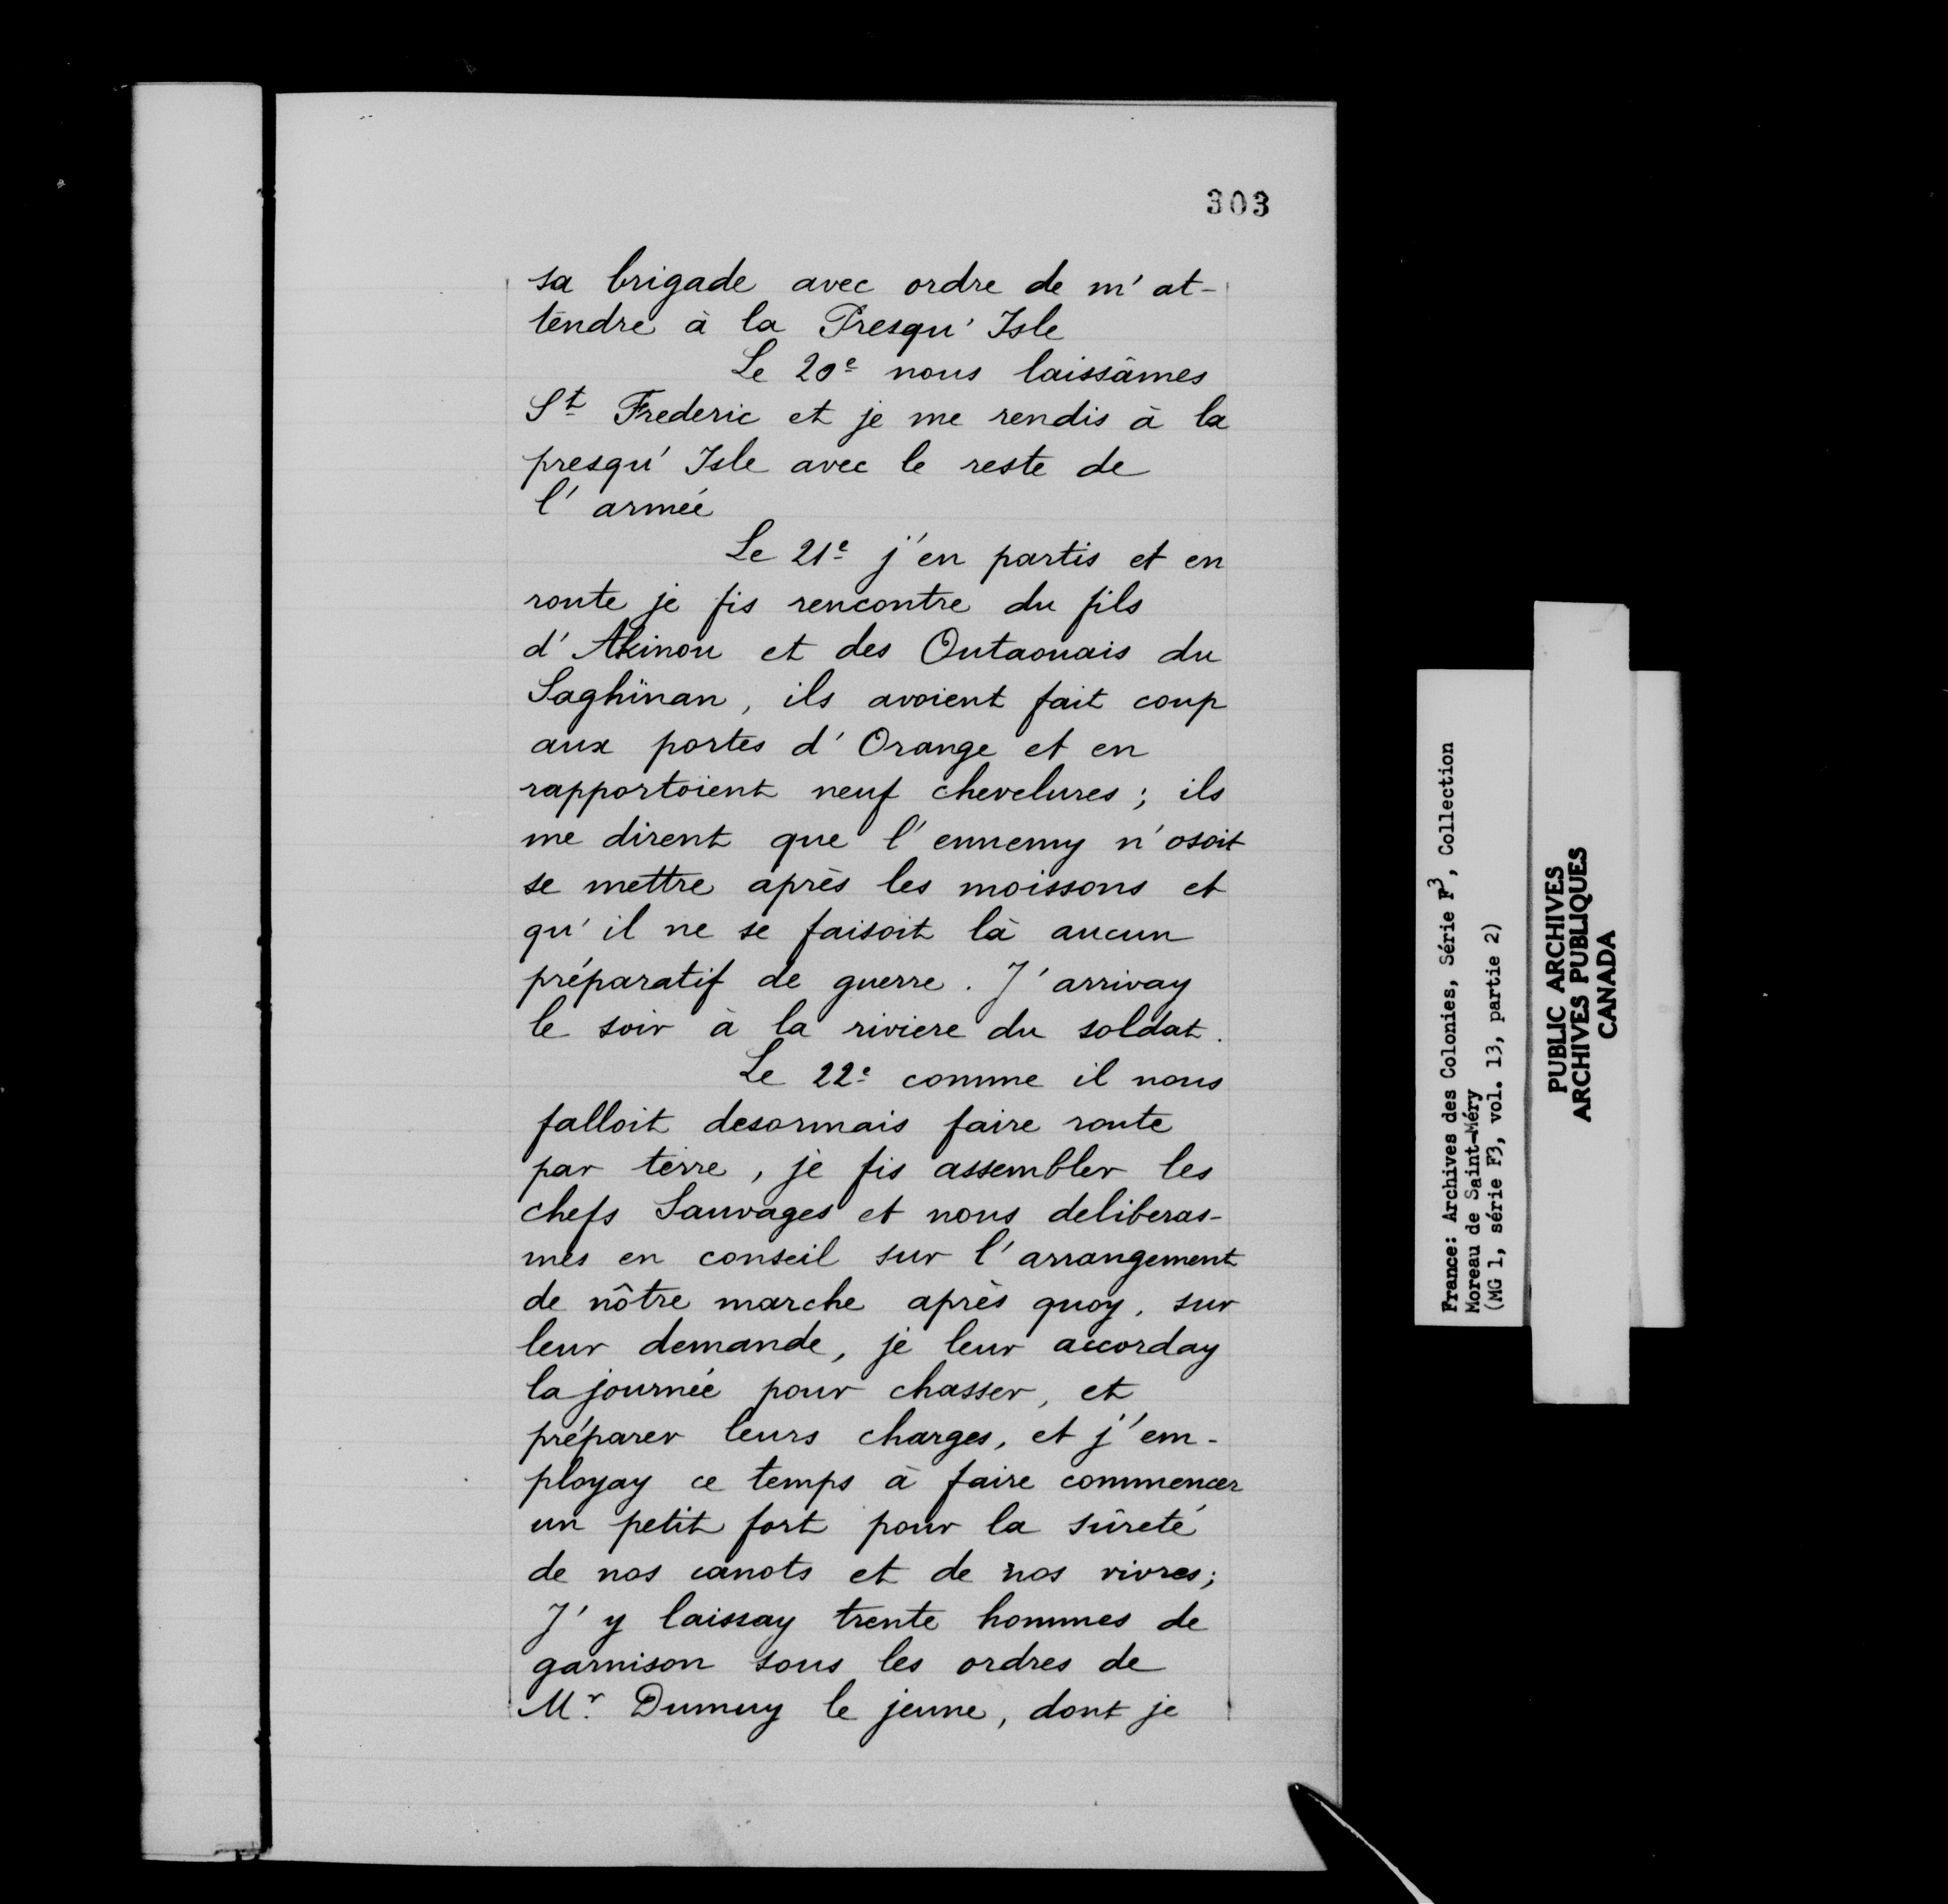 303
sa brigade avec ordre de m'at-
tendre à la Presqu'Isle
Le 20e nous laissâmes
St Frederic et je me rendis à la
presqu'Isle avec le reste de
l'armée
Le 21e j'en partis et en
route je fis rencontre du fils
d'Akinon et des Outaouais du
Saghinan, ils avoient fait coup
aux portes d'Orange et en
rapportoient neuf chevelures; ils
me dirent que l'ennemy n'osoit
se mettre après les moissons et
qu'il ne se faisoit là aucun
préparatif de guerre. J'arrivay
le soir à la riviere du soldat.
Le 22e comme il nous
falloit desormais faire route
par terre, je fis assembler les
chefs Sauvages et nous deliberas-
mes en conseil sur l'arrangement
de nôtre marche après quoy, sur
leur demande, je leur accorday
la journée pour chasser, et
préparer leurs charges, et j'em-
ployay ce temps à faire commencer
un petit fort pour la sûreté
de nos canots et de nos vivres;
J'y laissay trente hommes de
garnison sous les ordres de
Mr. Dumuy le jeune, dont je
France: Archives des Colonies, Série F3, Collection
Moreau de Saint-Méry
(MG 1, série F3, vol. 13, partie 2)
PUBLIC ARCHIVES
ARCHIVES PUBLIQUES
CANADA